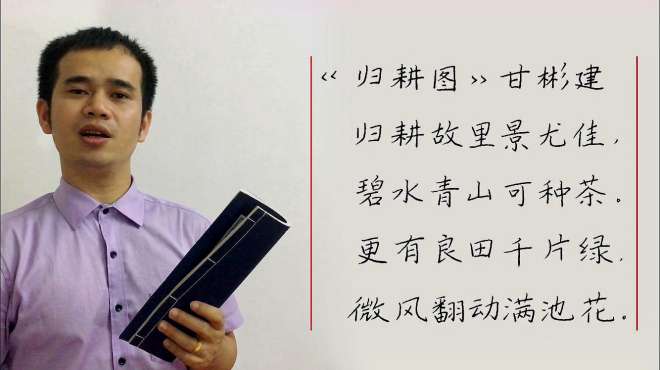 《归耕图》甘彬建
归耕故里景尤佳，
碧水青山可种茶。
更有良田千片绿，
微风翻动满池花。